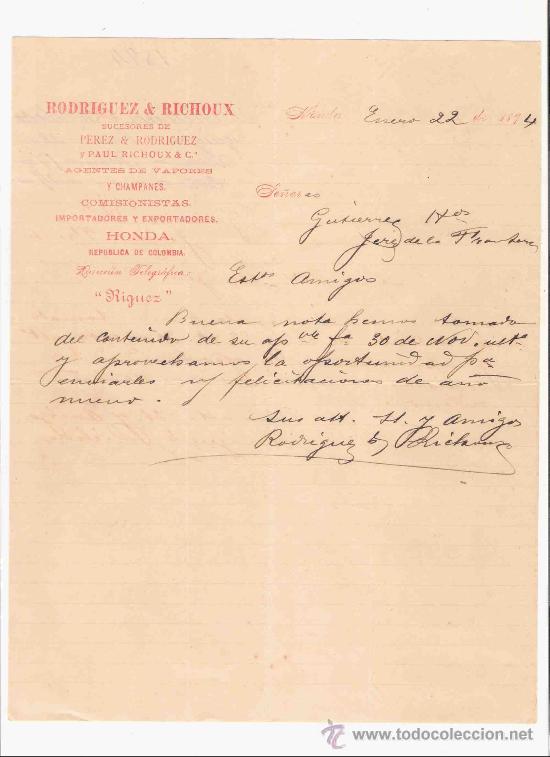 RODRIGUEZ & RICHOUX
SUCESORES DE
PEREZ & RODRIGUEZ
Y PAUL RICHOUX & C.ª
AGENTES DE VAPORES
Y CHAMPANES.
COMISIONISTAS.
IMPORTADORES Y EXPORTADORES.
HONDA.
REPUBLICA DE COLOMBIA.
Dirección Telegráfica:
"Riguez"
Honda, Enero 22 de 1894
Señores
Gutierrez Hos
Jerez de la Frontera
Estos Amigos
Buena nota hemos tomado
del contenido de su apble fa 30 de Nov.
y aprovechamos la oportunidad pa
enviarles felicitaciones de año
nuevo.
Sus att. SS. y Amigos
Rodriguez & Richoux
todocoleccion.net
TODOCOLECCION.NET